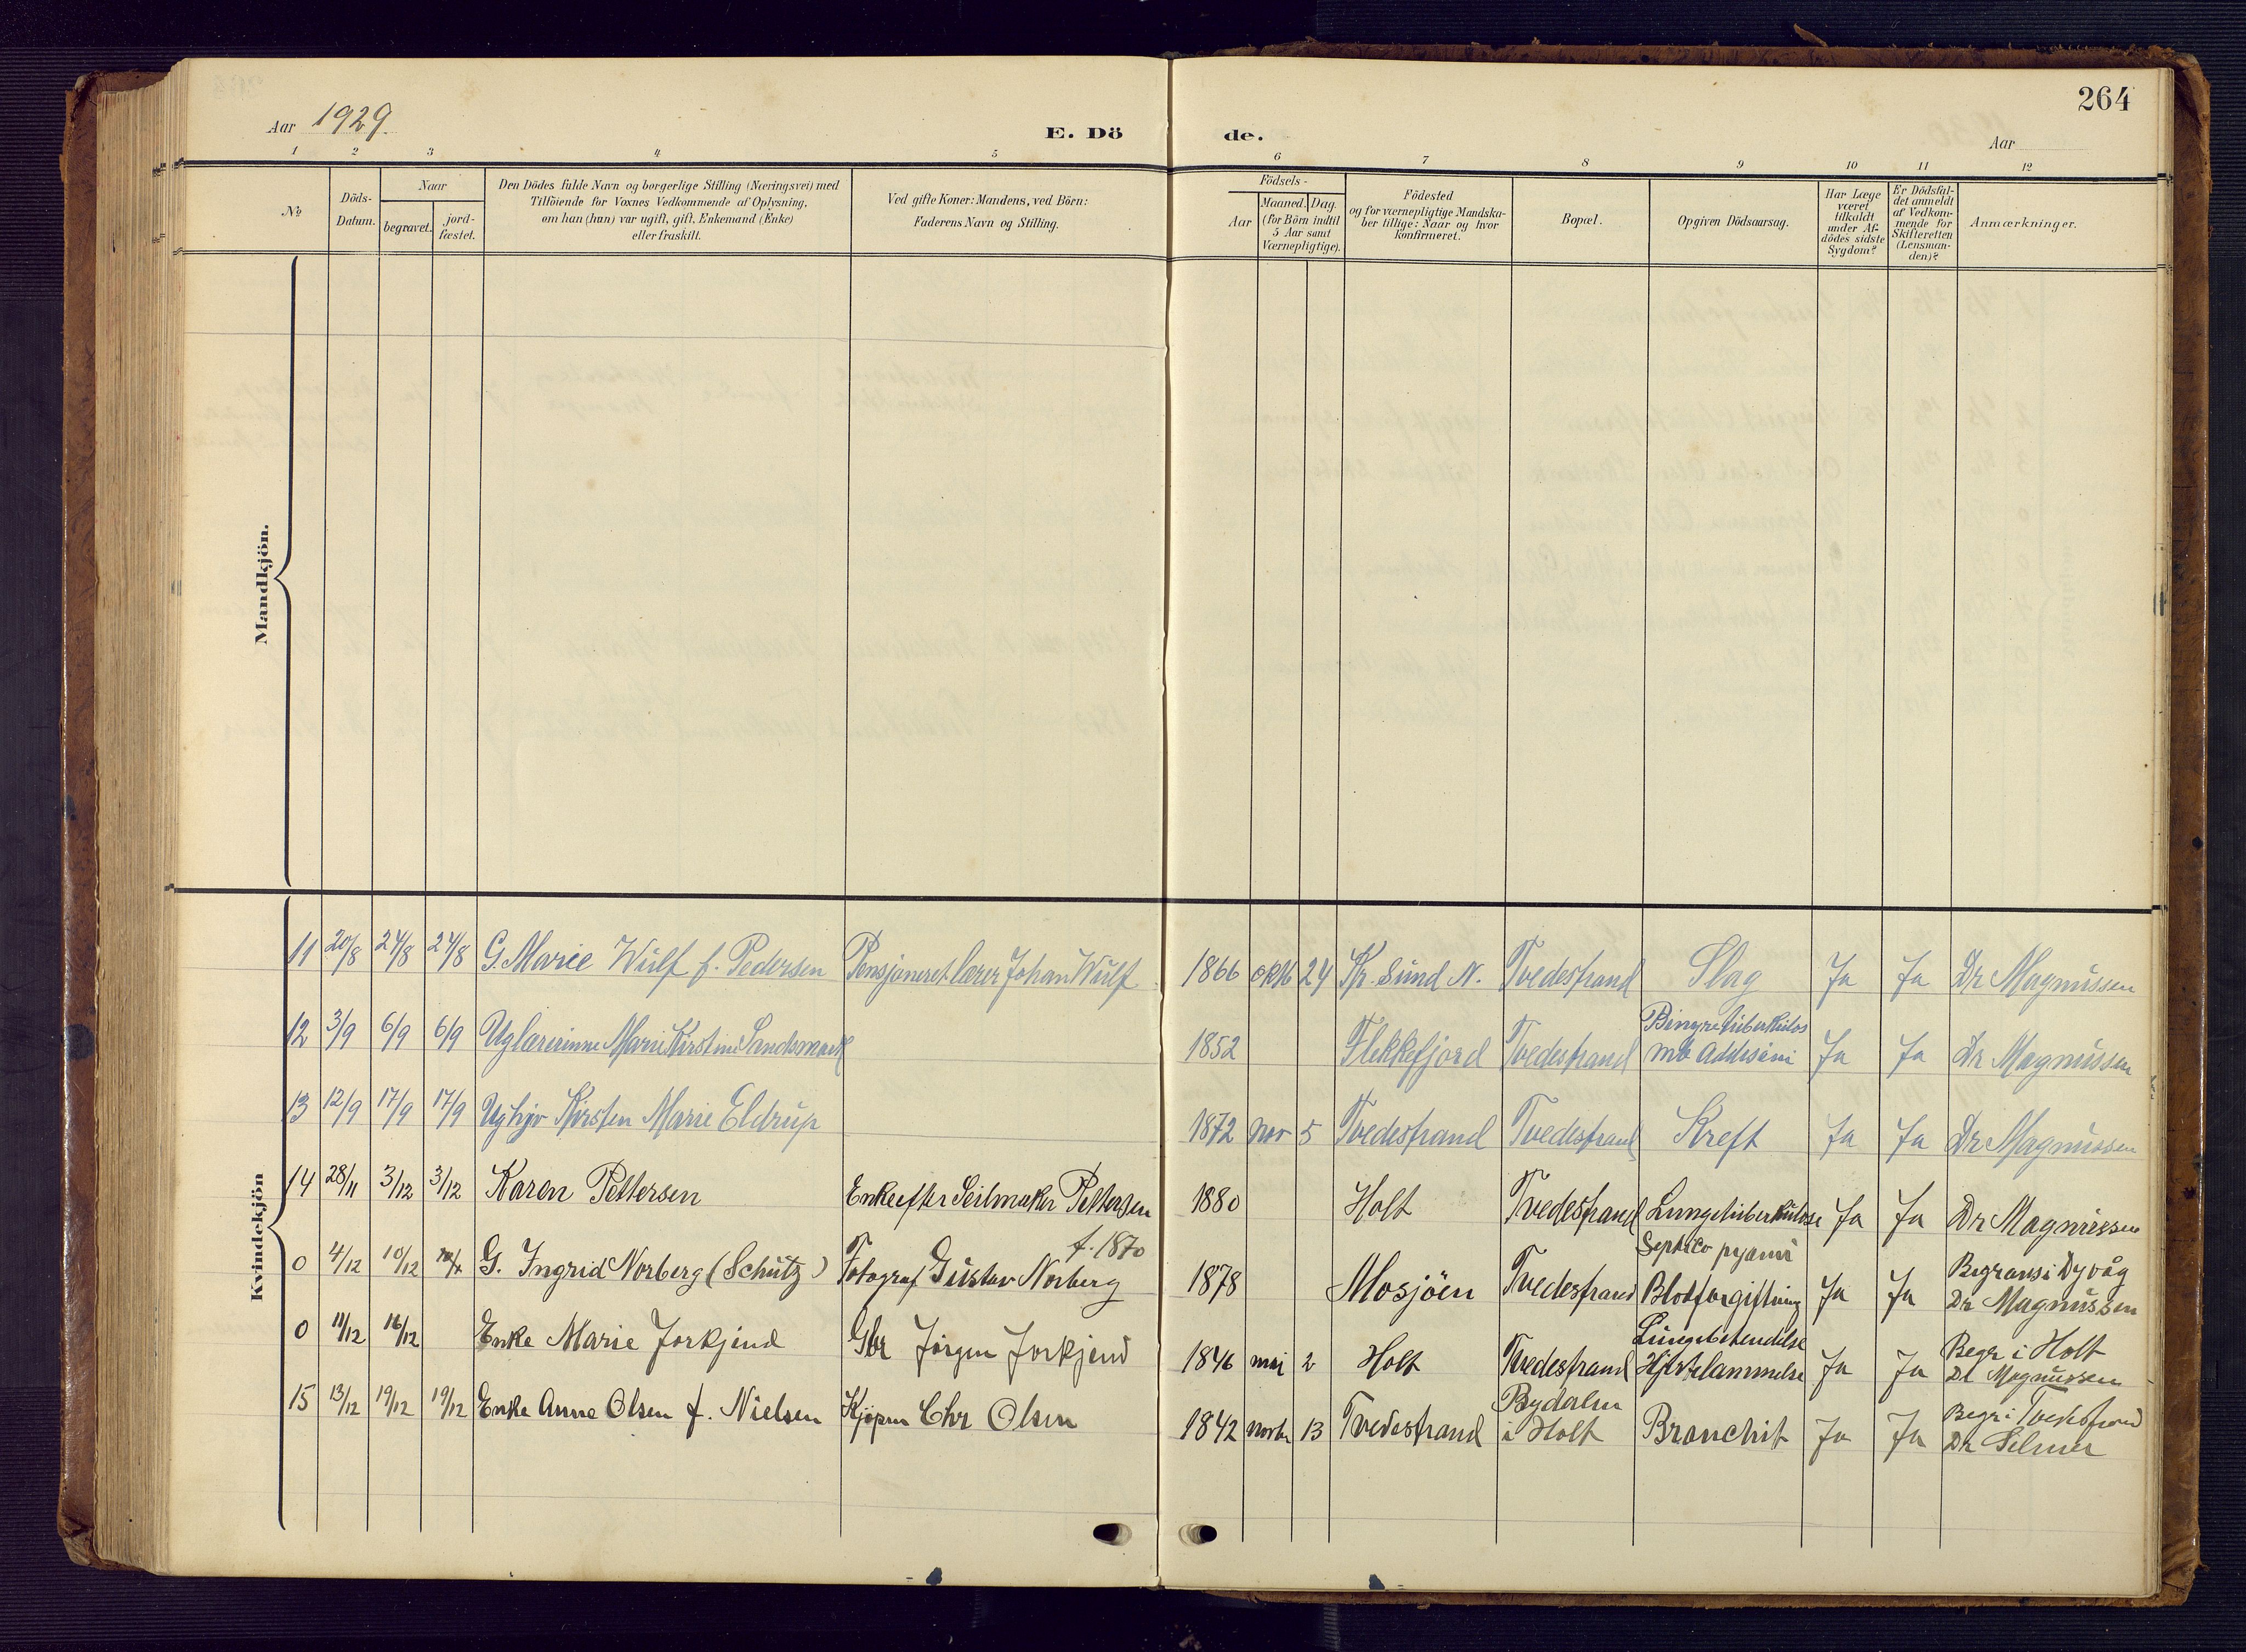 264
Aar 1929.
E. Dö de.
Aar
1 2 3 4 5 6 7 8 9 10 11 12
№
Döds-
Datum.
Naar
begravet.
jord-
fæstet.
Den Dödes fulde Navn og borgerlige Stilling (Næringsvei) med
Tilföiende for Voxnes Vedkommende af Oplysning,
om han (hun) var ugift, gift, Enkemand (Enke)
eller fraskilt.
Ved gifte Koner: Mandens, ved Börn:
Faderens Navn og Stilling.
Födsels-
Aar
Maaned. Dag.
(for Börn indtil
5 Aar samt
Værnepligtige).
Födested
og for værnepligtige Mandska-
ber tillige: Naar og hvor
konfirmeret.
Bopæl.
Opgiven Dödsaarsag.
Har Læge
været
tilkaldt
under Af-
dödes sidste
Sygdom?
Er Dödsfal-
det anmeldt
af Vedkom-
mende for
Skifteretten
(Lensman-
den)?
Anmærkninger.
Mandkjön.
Kvindekjön
11 20/8 24/8 24/8 G. Marie Wulf f. Pedersen Pensjoneret lærer Johan Wulf 1866 okt 24 Kr. Sund N. Tvedestrand Slag Ja Ja Dr Magnussen
12 3/9 6/9 6/9 Ug lærerinne Marie Kirstine Sandsmark 1852 Flekkefjord Tvedestrand Binyretuberkulos
mb Addisoni Ja Ja Dr Magnussen
13 12/9 17/9 17/9 Ug hjv Kirsten Marie Eldrup 1872 nov 5 Tvedestrand Tvedestrand Kreft Ja Ja Dr Magnussen
14 28/11 3/12 3/12 Karen Pettersen Enke efter Seilmaker Pettersen 1880 Holt Tvedestrand Lungetuberkulose Ja Ja Dr Magnussen
f. 1870
0 4/12 10/12 G. Ingrid Norberg (Schütz) Fotograf Gustav Norberg 1878 Mosjöen Tvedestrand Septico pyämi
Blodforgiftning Ja Ja Begraves i Dyvåg
Dr Magnussen
0 11/12 16/12 Enke Marie Jorkjend Gbr Jörgen Jorkjend 1846 mai 2 Holt Tvedestrand Lungebetendelse
Hjertelammelse Ja Ja Begr i Holt
Dr Magnussen
15 13/12 19/12 19/12 Enke Anne Olsen f. Nielsen Kjöpm Chr Olsen 1842 novbr 13 Tvedestrand Bydalen
i Holt Bronchit Ja Ja Begr i Tvedestrand
Dr Selmer